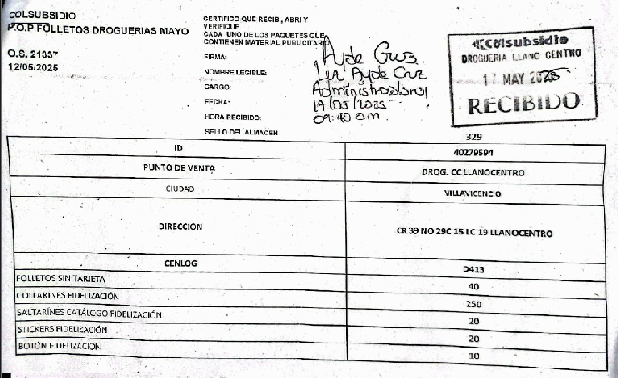 COLSUBSIDIO
P.O.P FOLLETOS DROGUERIAS MAYO
O.S. 2133
12/05/2025
CERTIFICO QUE RECIBI, ABRI Y
VERIFIQUE
CADA UNO DE LOS PAQUETES QUE
CONTIENEN MATERIAL PUBLICITARIO
FIRMA:
NOMBRE LEGIBLE:
CARGO:
FECHA:
HORA RECIBIDO:
SELLO DEL ALMACEN
Ayde Cruz
Administradora
09:40 am
Colsubsidio
DROGUERIA LLANO CENTRO
MAY 2025
RECIBIDO
329
ID 40279591
PUNTO DE VENTA DROG. CC LLANOCENTRO
CIUDAD VILLAVICENCIO
DIRECCIÓN CR 39 NO 29C 15 LC 19 LLANOCENTRO
CENLOG 3413
FOLLETOS SIN TARJETA 40
COLLARINES FIDELIZACIÓN 250
SALTARÍNES CATÁLOGO FIDELIZACIÓN 20
STICKERS FIDELIZACIÓN 20
BOTÓN FIDELIZACION 10